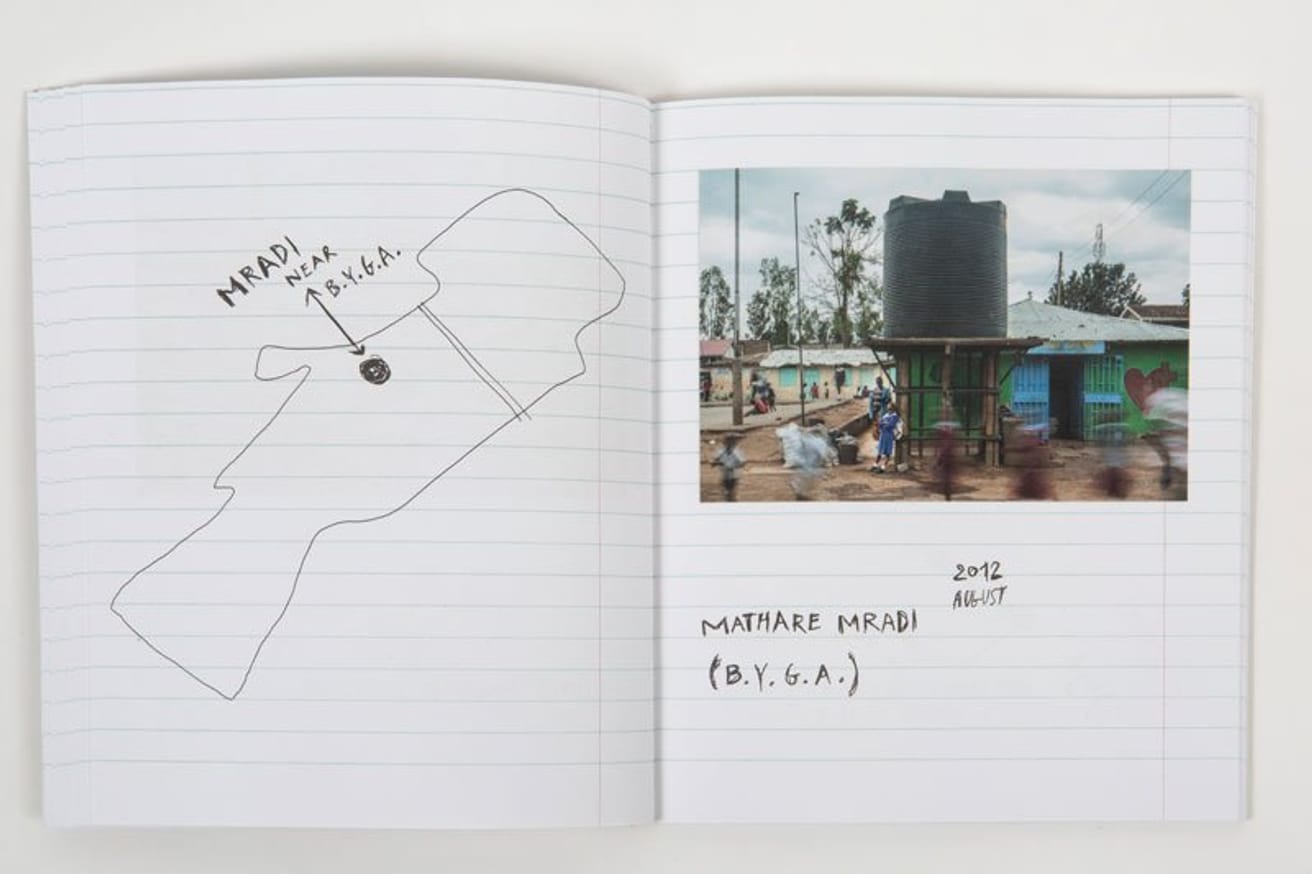 MRADI
NEAR
B.Y.G.A.
2012
AUGUST
MATHARE MRADI
(B.Y.G.A.)